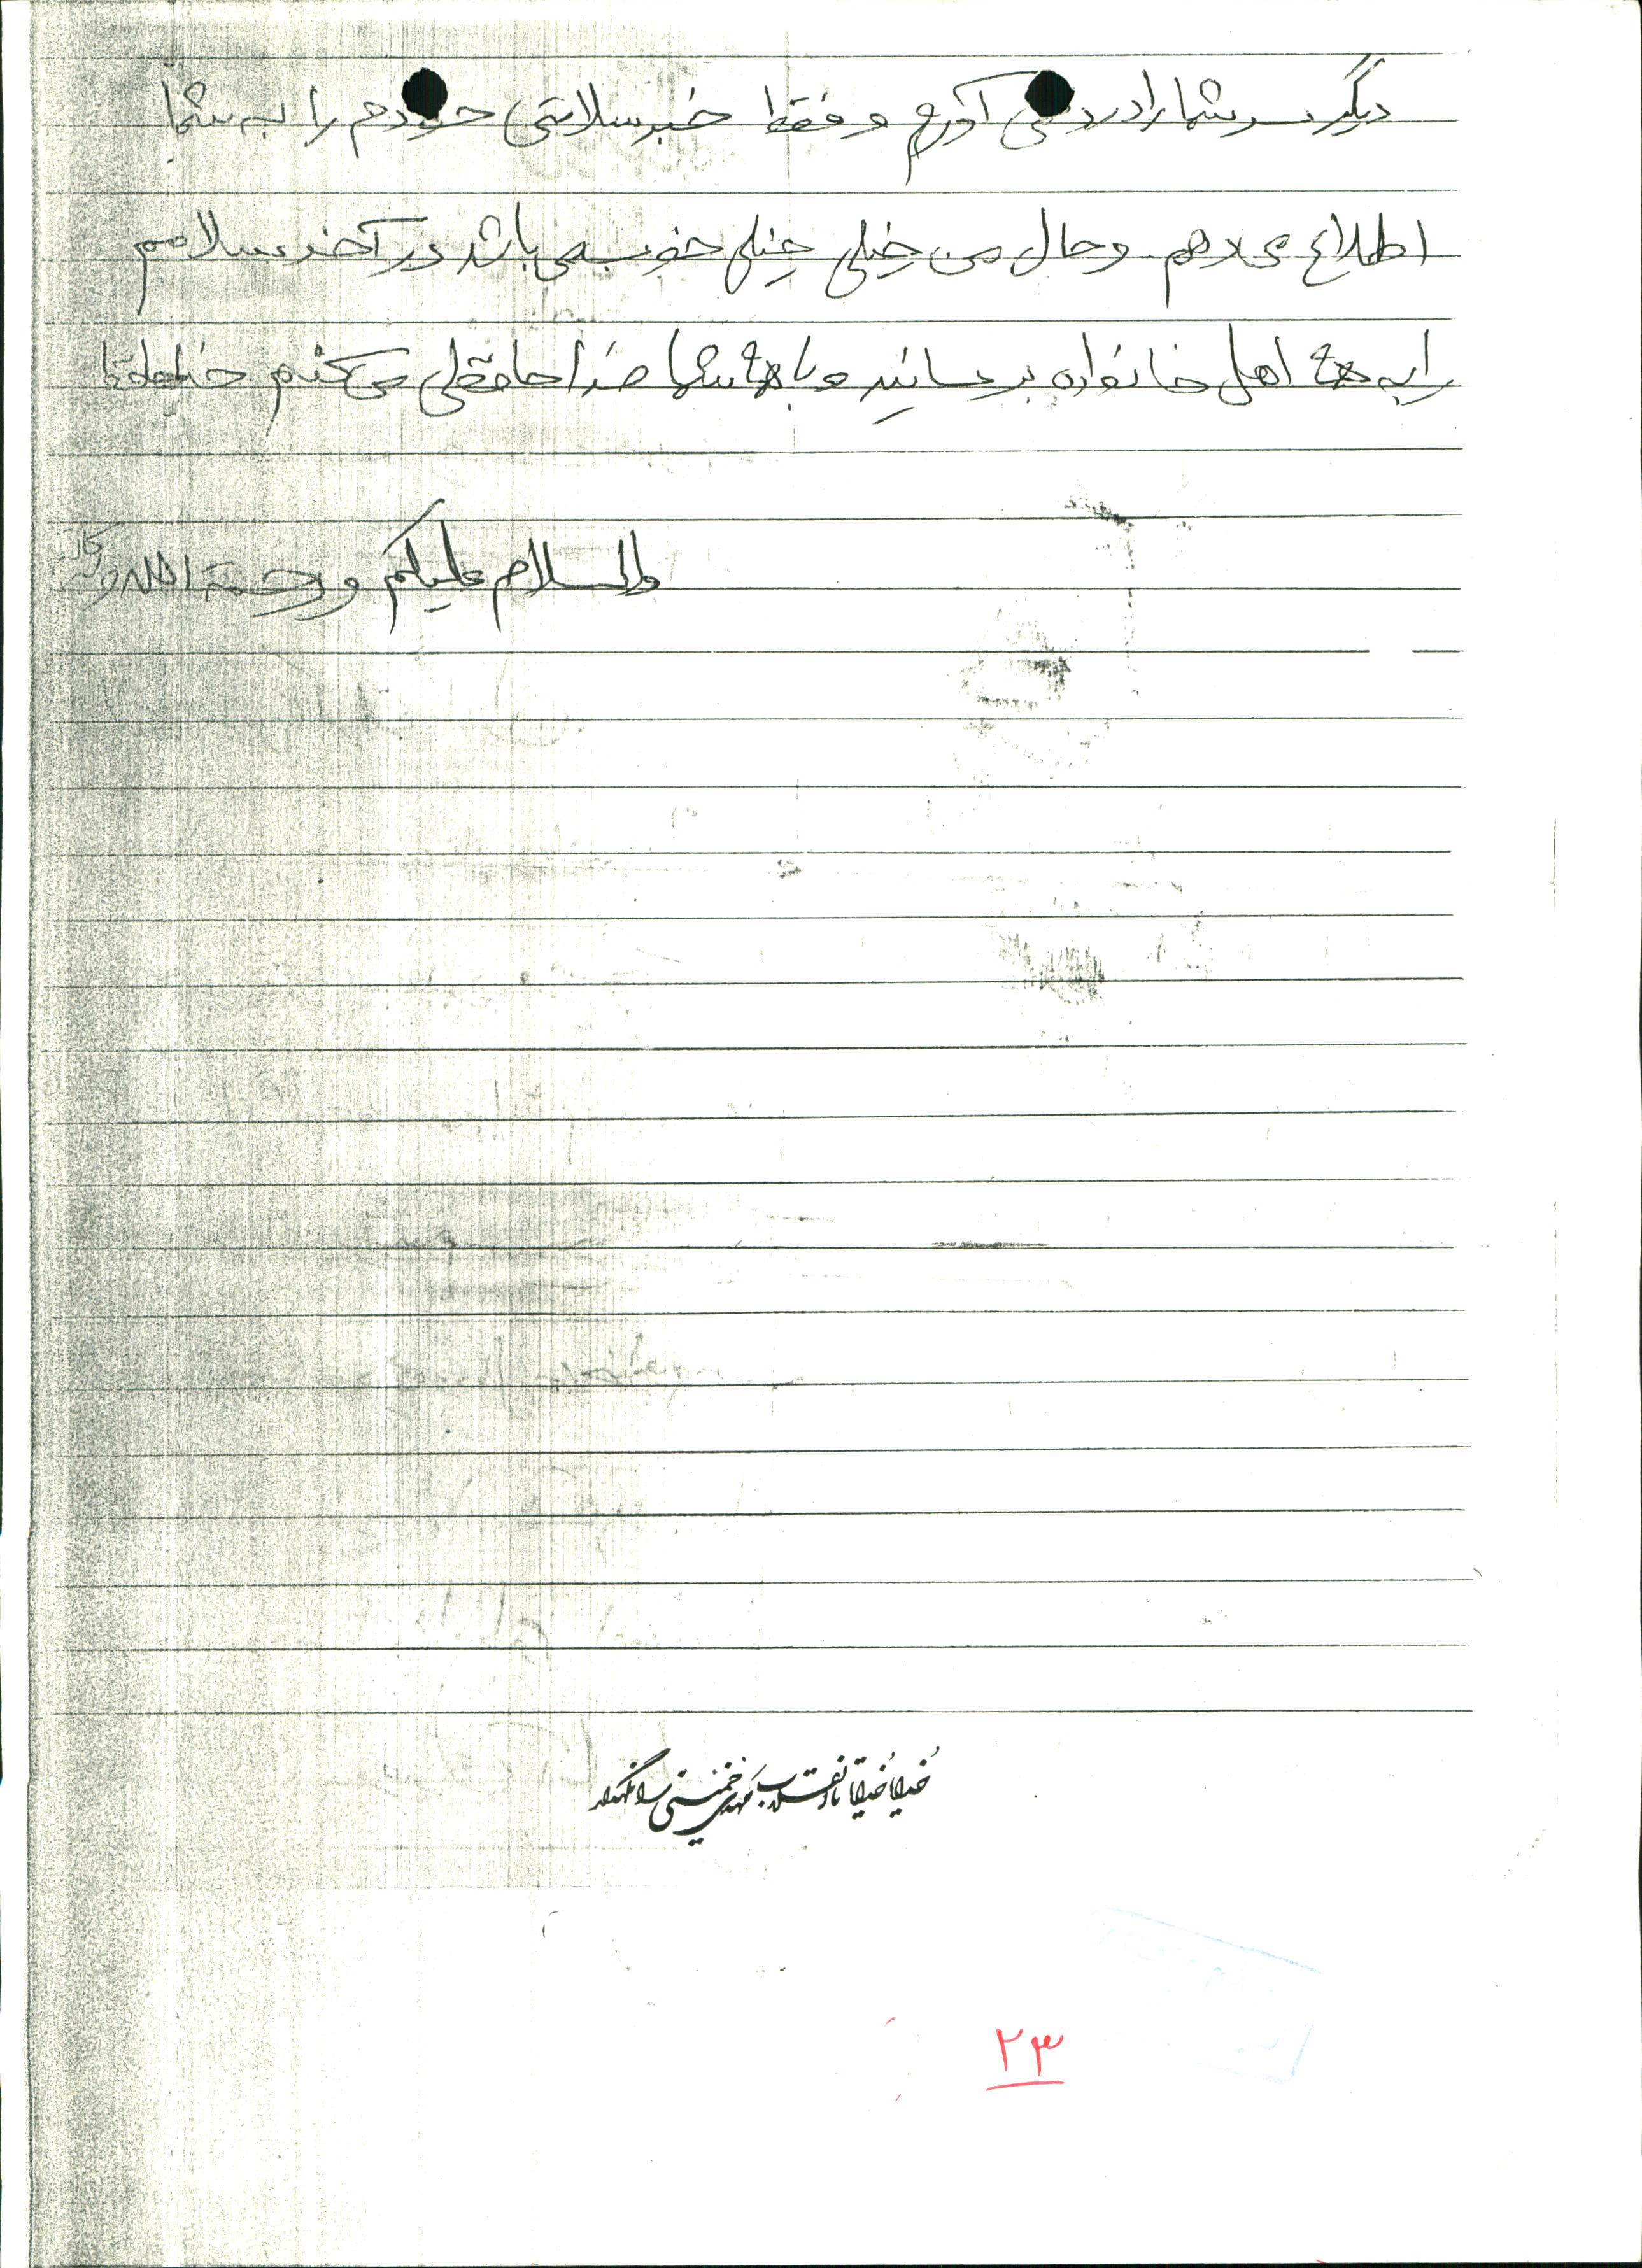 دیگر سر شما را درد نمی آورم و فقط خبر سلامتی خودم را به شما
اطلاع می دهم و حال من خیلی خیلی خوب می باشد در آخر سلامم
را به همه اهل خانواده برسانید و با همه شما خداحافظی می کنم خداحافظ
والسلام علیکم و رحمة الله و برکاته
خدایا خدایا تا انقلاب مهدی خمینی را نگهدار
۲۳